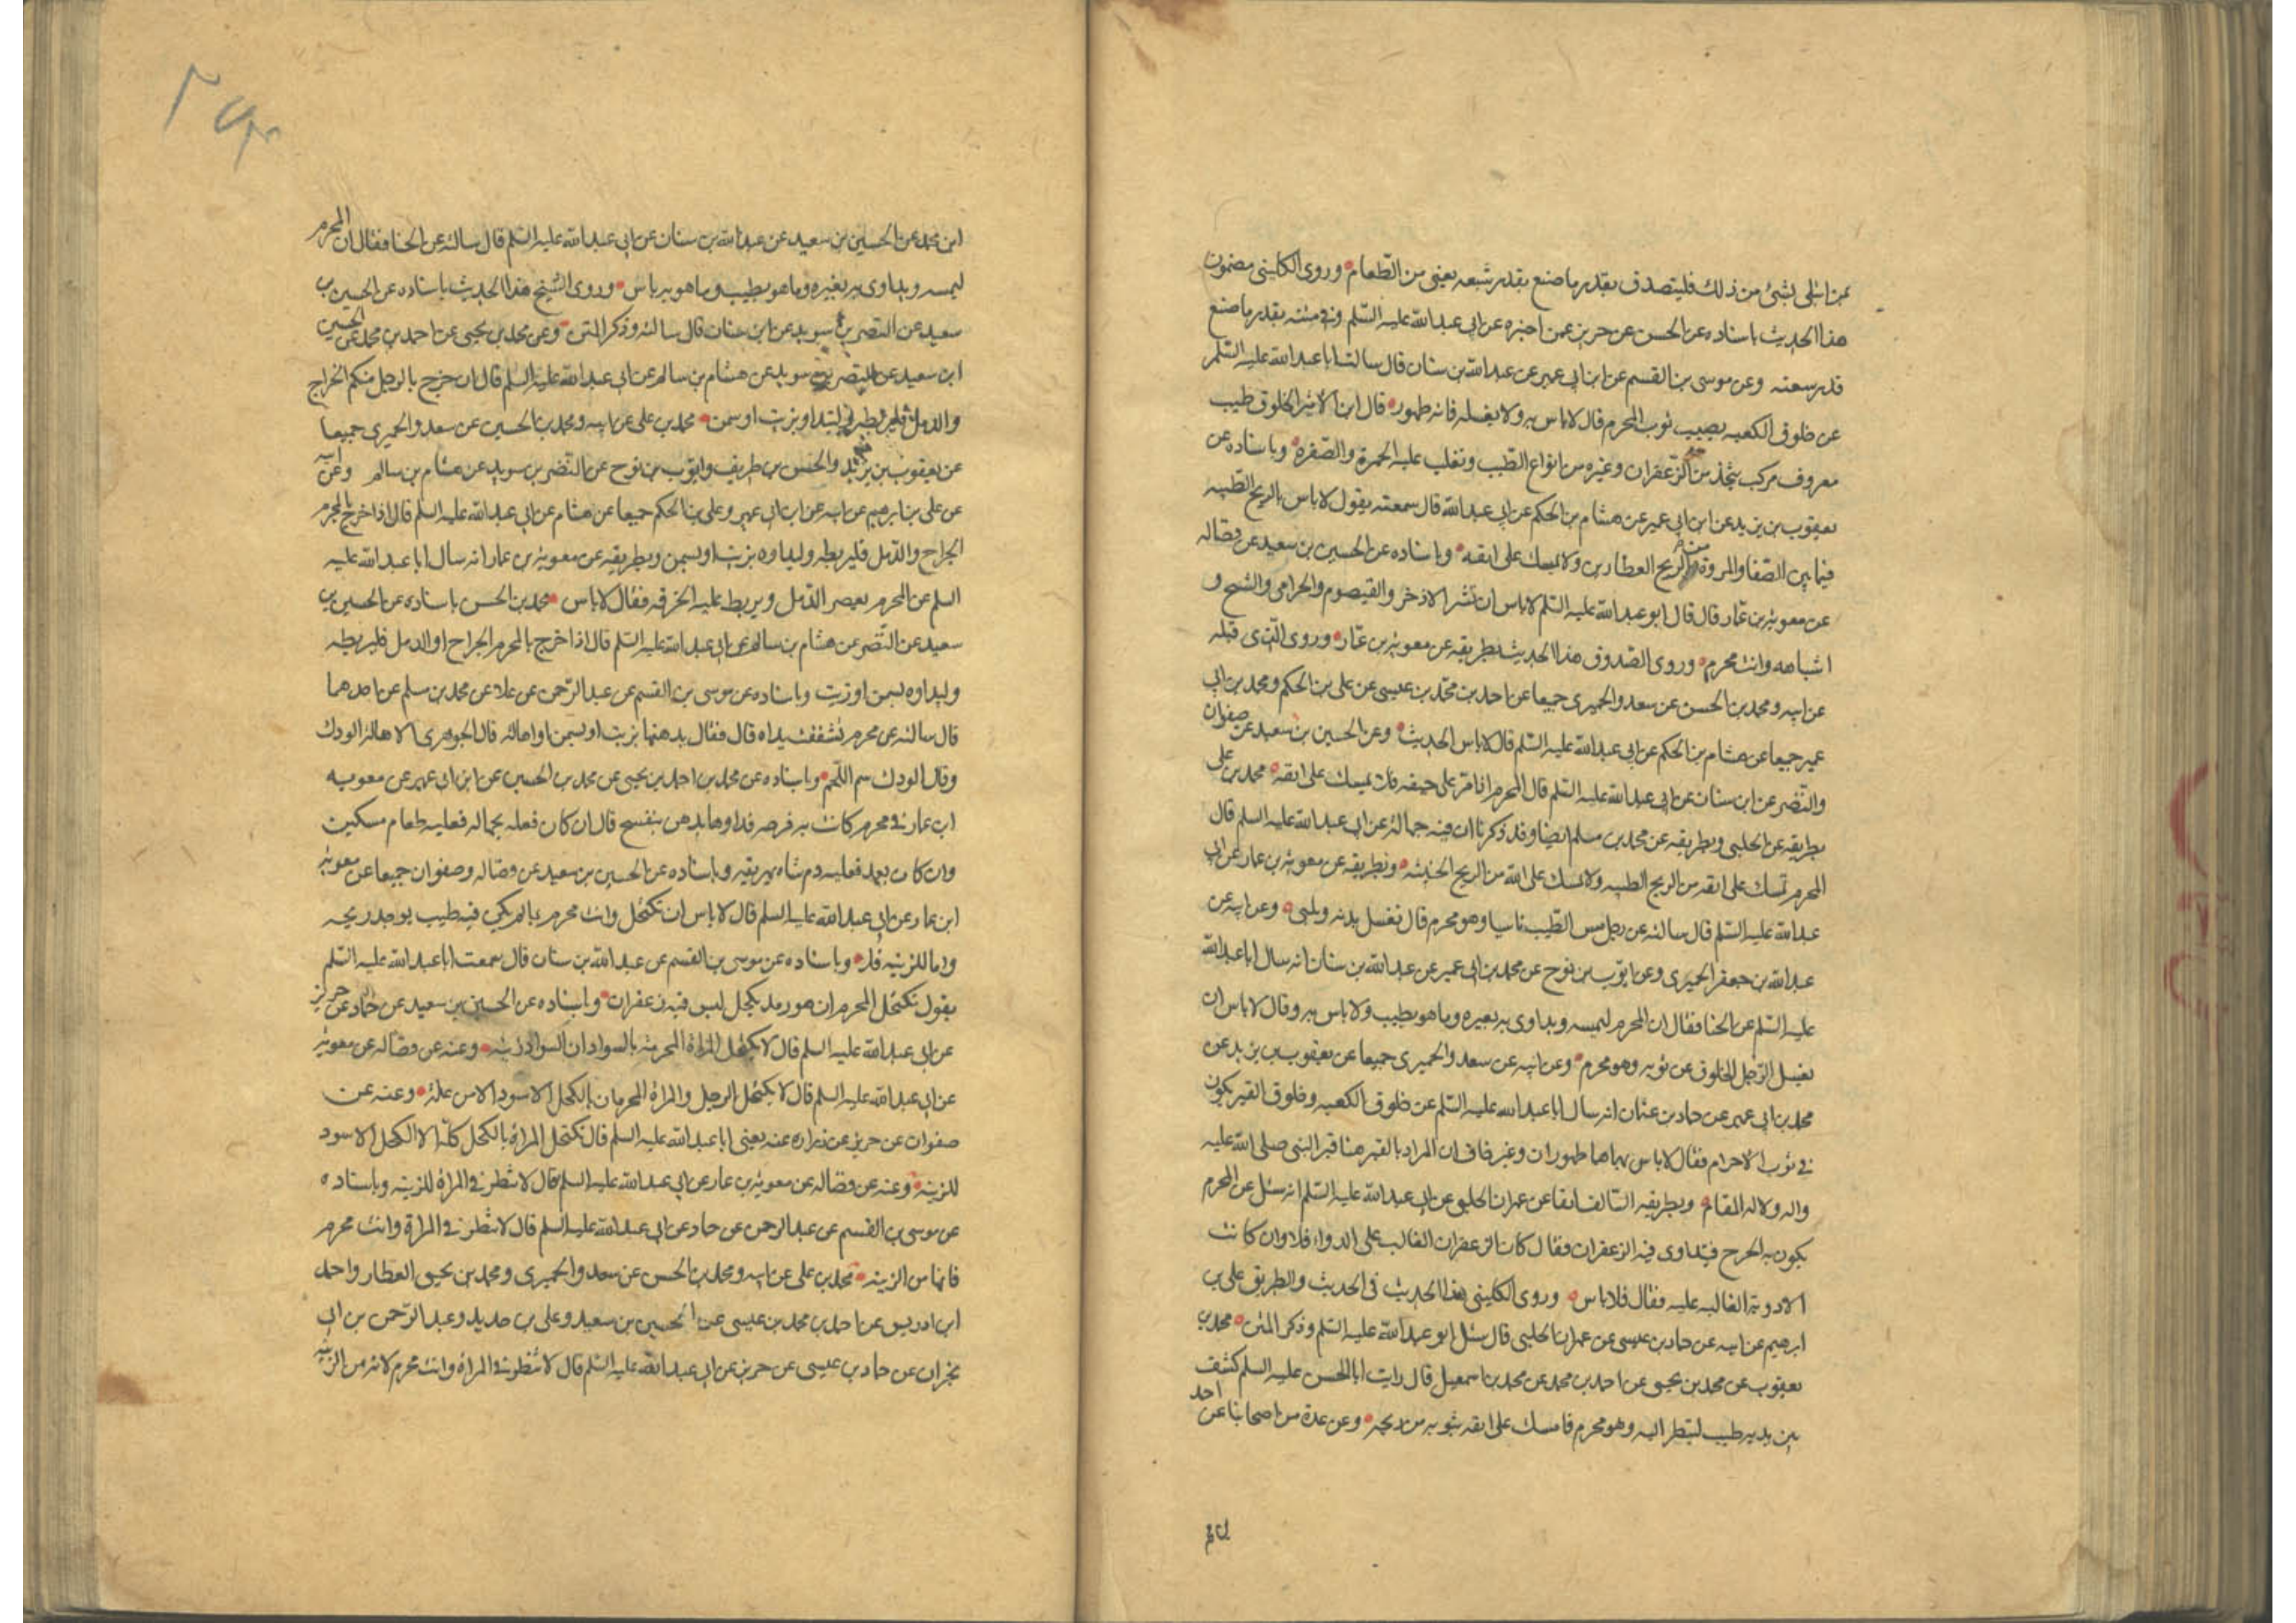 فمن ابتلى بشئ من ذلك فليتصدق بقدر ما صنع بقدر شبعه يعنى من الطعام وروى الكلينى مضمون
هذا الحديث باسناده عن الحسن عن حريز عمن اخبره عن ابى عبدالله عليه السّلم وفى متنه بقدر ما صنع
قدر سعته وعن موسى بن القسم عن ابن ابى عمير عن عبدالله بن سنان قال سالت ابا عبدالله عليه السّلم
عن خلوق الكعبه يصيب ثوب المحرم قال لاباس به ولا يغسله فانه طهور قال ابن الاثير الخلوق طيب
معروف مركب يتخذ من الزعفران وغيره من انواع الطيب وتغلب عليه الحمرة والصّفرة وباسناده عن
يعقوب بن يزيد عن ابن ابى عمير عن هشام بن الحكم عن ابى عبدالله قال سمعته يقول لاباس بالريح الطيبه
فيما بين الصّفا والمروة من ريح العطارين ولا يمسك على انفه وباسناده عن الحسين بن سعيد عن فضاله
عن معوية بن عمّار قال قال ابو عبدالله عليه السّلم لاباس ان تشم الاذخر والقيصوم والخزامى والشيح و
اشباهه وانت محرم وروى الصّدوق هذا الحديث بطريقه عن معوية بن عمّار وروى الّذى قبله
عن ابيه ومحمد بن الحسن عن سعد والحميرى جميعا عن احمد بن محمّد بن عيسى عن على بن الحكم ومحمد بن ابى
عمير جميعا عن هشام بن الحكم عن ابى عبدالله عليه السّلم قال لاباس الحديث وعن الحسين بن سعيد عن صفوان
والنّضر عن ابن سنان عن ابى عبدالله عليه السّلم قال المحرم اذا مرّ على جيفه فلا يمسك على انفه محمد بن على
بطريقه عن الحلبى وبطريقه عن محمد بن مسلم ايضا وقد ذكرنا ان فيه جهالة عن ابى عبدالله عليه السلم قال
المحرم يمسك على انفه من الريح الطيبه ولا يمسك على انفه من الريح الخبيثه وبطريقه عن معوية بن عمار عن ابى
عبدالله عليه السّلم قال سالته عن رجل مس الطّيب ناسيا وهو محرم قال يغسل يديه ويلبى وعن ابيه عن
عبدالله بن جعفر الحميرى وعن ايّوب بن نوح عن محمد بن ابى عمير عن عبدالله بن سنان انه سال ابا عبدالله
عليه السّلم عن الحنا فقال ان المحرم ليمسه ويداوى به بعيره وما هو بطيب ولا باس به وقال لاباس ان
يغسل الرّجل الخلوق عن ثوبه وهو محرم وعن ابيه عن سعد والحميرى جميعا عن يعقوب بن يزيد عن
محمد بن ابى عمير عن حماد بن عثمان انه سال ابا عبدالله عليه السّلم عن خلوق الكعبه وخلوق القبر يكون
فى ثوب الاحرام فقال لاباس بهما هما طهوران وغير خاف ان المراد بالقبر هنا قبر النبى صلى الله عليه
واله ولاله المقام وبطريقه السّالف انفا عن عمران الحلبى عن ابى عبدالله عليه السّلم انه سئل عن المحرم
يكون به الجرح فيتداوى فيه الزعفران فقال كان الزعفران الغالب على الدواء فلا وان كانت
الادوية الغالبه عليه فقال فلاباس وروى الكلينى هذا الحديث فى الحديث والطريق على بن
ابرهيم عن ابيه عن حماد بن عيسى عن عمران الحلبى قال سئل ابو عبدالله عليه السّلم وذكر المتن محمد بن
يعقوب عن محمد بن يحيى عن احمد بن محمد عن محمد بن اسمعيل قال رايت ابا الحسن عليه السلم كشف
بين يديه طيب لينظر اليه وهو محرم فامسك على انفه بثوبه من ريحه وعن عدة من اصحابنا عن احمد
ابن محمد عن الحسين بن سعيد عن عبدالله بن سنان عن ابى عبدالله عليه السّلم قال سالته عن الحنا فقال ان المحرم
ليمسه ويداوى به بعيره وما هو بطيب وما هو به باس وروى الشيخ هذا الحديث باسناده عن الحسين بن
سعيد عن النضر بن سويد عن ابن سنان قال سالته وذكر المتن وعن محمد بن يحيى عن احمد بن محمد عن الحسين
ابن سعيد عن النضر بن سويد عن هشام بن سالم عن ابى عبدالله عليه السلم قال ان خرج بالرجل منكم الخراج
والدمل فليربطه وليتداو بزيت او سمن محمد بن على عن ابيه ومحمد بن الحسين عن سعد والحميرى جميعا
عن يعقوب بن يزيد والحسن بن طريف وايّوب بن نوح عن النّضر بن سويد عن هشام بن سالم وعن ابيه
عن على بن ابرهيم عن ابيه عن ابن ابى عمير وعلى بن الحكم جميعا عن هشام عن ابى عبدالله عليه السلم قال اذا خرج بالمحرم
الجراح والدّمل فليربطه وليداوه بزيت او بسمن وبطريقه عن معوية بن عمار انه سال ابا عبدالله عليه
السلم عن المحرم يعصر الدّمل ويربط عليه الخرقه فقال لاباس محمد بن الحسن باسناده عن الحسين بن
سعيد عن النّضر عن هشام بن سالم عن ابى عبدالله عليه السّلم قال اذا خرج بالمحرم الجراح او الدمل فليربطه
وليداوه بسمن او زيت وباسناده عن موسى بن القسم عن عبدالرّحمن عن علا عن محمد بن مسلم عن احدهما
قال سالته عن محرم تشققت يداه قال فقال يدهنهما بزيت او بسمن او اهالة قال الجوهرى الاهالة الودك
وقال الودك دسم اللّحم وباسناده عن محمد بن احمد بن يحيى عن محمد بن الحسين عن ابن ابى عمير عن معويه
ابن عمار فى محرم كانت به قرحه فداوها بدهن بنفسج قال ان كان فعله بجهالة فعليه طعام مسكين
وان كان بعمد فعليه دم شاه يهريقه وباسناده عن الحسين بن سعيد عن فضاله وصفوان جميعا عن معوية
ابن عمار عن ابى عبدالله عليه السلم قال لاباس ان تكتحل وانت محرم بما لم يكن فيه طيب يوجد ريحه
واما للزينه فلا وباسناده عن موسى بن القسم عن عبدالله بن سنان قال سمعت ابا عبدالله عليه السّلم
يقول يكتحل المحرم ان هو رمد بكحل ليس فيه زعفران وباسناده عن الحسين بن سعيد عن حمّاد عن حريز
عن ابى عبدالله عليه السلم قال لا تكتحل المراة المحرمة بالسواد ان السواد زينه وعنه عن فضاله عن معوية
عن ابى عبدالله عليه السلم قال لا يكتحل الرجل والمراة المحرمان بالكحل الاسود الا من علّة وعنه عن
صفوان عن حريز عن زراره عنه يعنى ابا عبدالله عليه السلم قال تكتحل المراة بالكحل كلّه الا الكحل الاسود
للزينه وعنه عن فضاله عن معوية بن عمار عن ابى عبدالله عليه السلم قال لا تنظر فى المراة للزينه وباسناده
عن موسى بن القسم عن عبدالرحمن عن حماد عن ابى عبدالله عليه السلم قال لا تنظر فى المراة وانت محرم
فانها من الزينه محمد بن على عن ابيه ومحمد بن الحسن عن سعد والحميرى ومحمد بن يحيى العطار واحمد
ابن ادريس عن احمد بن محمد بن عيسى عن الحسين بن سعيد وعلى بن حديد وعبدالرّحمن بن ابى
نجران عن حماد بن عيسى عن حريز عن ابى عبدالله عليه السّلم قال لا تنظر فى المراة وانت محرم لانه من الزينه